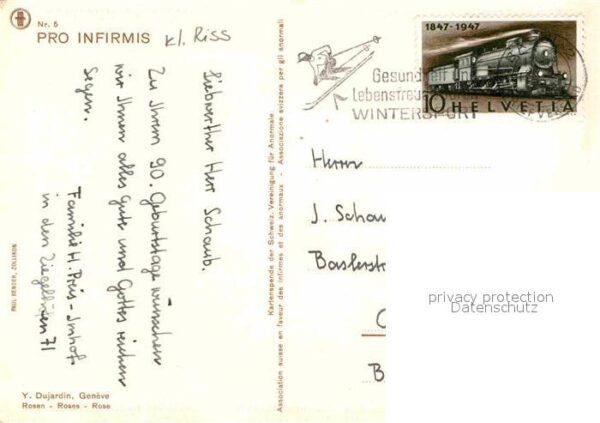 Nr. 5
PRO INFIRMIS
kl. Riss
Liebwerther Herr Schaub.
Zu Ihrem 90. Geburtstage wünschen
wir Ihnen alles Gute und Gottes reichen
Segen.
Familie H. Preis-Imhof
in den Ziegelhöfen 71
PAUL BENDER, ZOLLIKON
Y. Dujardin, Genève
Rosen - Roses - Rose
Kartenspende der Schweiz. Vereinigung für Anormale
Association suisse en faveur des infirmes et des anormaux - Associazione svizzera per gli anormali
1847-1947
10 HELVETIA
Gesundheit
Lebensfreude
WINTERSPORT
Herrn
J. Schau
Baslerst
B
privacy protection
Datenschutz